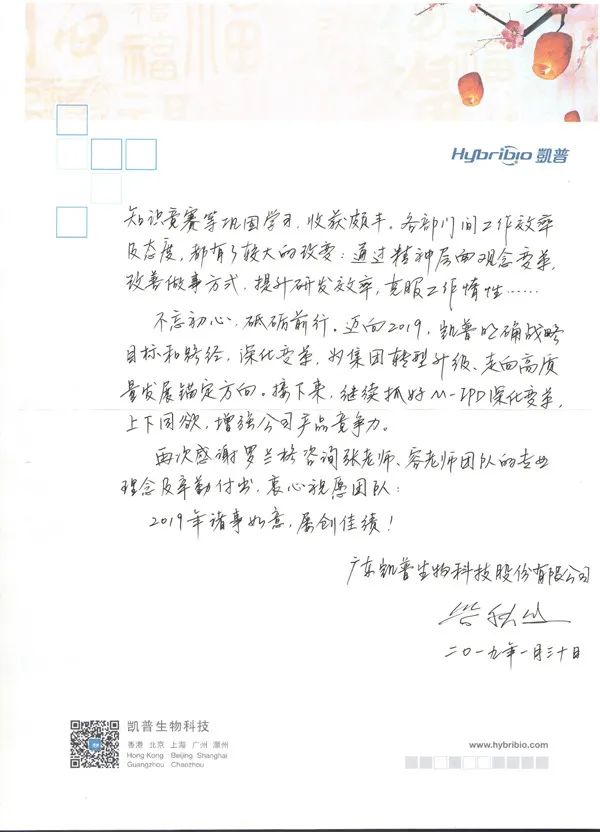 Hybribio 凯普
知识竞赛等巩固学习,收获颇丰。各部门间工作效率
及态度,都有了较大的改变:通过精神层面观念变革,
改善做事方式,提升研发效率,克服工作惰性……
不忘初心,砥砺前行。迈向2019,凯普明确战略
目标和路径,深化变革,为集团转型升级、走向高质
量发展锚定方向。接下来,继续抓好M-IPD深化变革,
上下同欲,增强公司产品竞争力。
再次感谢罗兰格咨询张老师、容老师团队的专业
理念及辛勤付出,衷心祝愿团队:
2019年诸事如意,屡创佳绩!
广东凯普生物科技股份有限公司
二〇一九年一月三十日
凯普生物科技
香港 北京 上海 广州 潮州
Hong Kong Beijing Shanghai
Guangzhou Chaozhou
www.hybribio.com